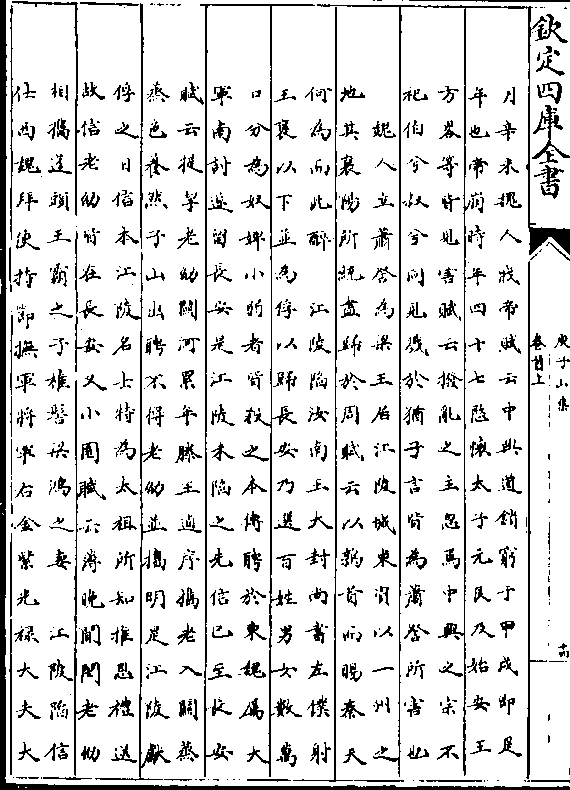 欽定四庫全書
庾子山集
卷首上
十四
月辛未魏人戕帝賦云中興道銷窮于甲戌即是
年也帝崩時年四十七愍懷太子元良及始安王
方畧等皆見害賦云撥亂之主忽焉中興之宗不
祀伯兮叔兮同見戮於猶子言皆為蕭詧所害也
魏人立蕭詧為梁王居江陵城東資以一州之
地其襄陽所統盡歸於周賦云以鶉首而賜秦天
何為而此醉 江陵陷汝南王大封尚書左僕射
王褒以下並為俘以歸長安乃選百姓男女數萬
口分為奴婢小弱者皆殺之本傳聘於東魏屬大
軍南討遂留長安是江陵未陷之先信已至長安
賦云提挈老幼關河累年滕王逌序攜老入關蒸
蒸色養然子山出聘不得老幼並攜明是江陵獻
俘之日信本江陵名士特為太祖所知推恩禮送
故信老幼皆在長安又小園賦云薄晚閒閨老幼
相攜蓬頭王霸之子椎髻梁鴻之妻 江陵陷信
仕西魏拜使持節撫軍將軍右金紫光祿大夫大